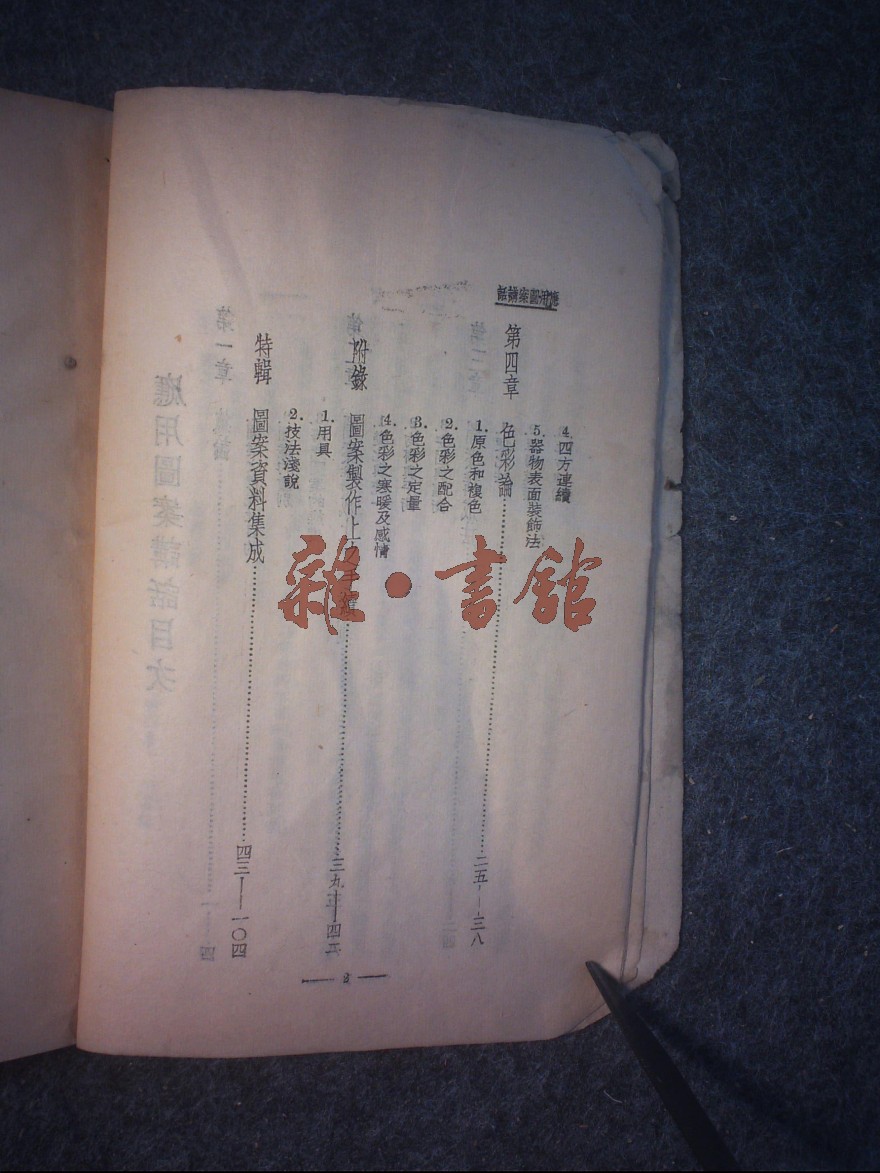 應用圖案講話
4.四方連續
5.器物表面裝飾法
第四章 色彩論……二五——三八
1.原色和複色
2.色彩之配合
3.色彩之定量
4.色彩之寒暖及感情
附錄 圖案製作上之準備……三九——四二
1.用具
2.技法淺說
特輯 圖案資料集成……四三——一〇四
— 2 —
雜·書館
應用圖案講話目次
第一章